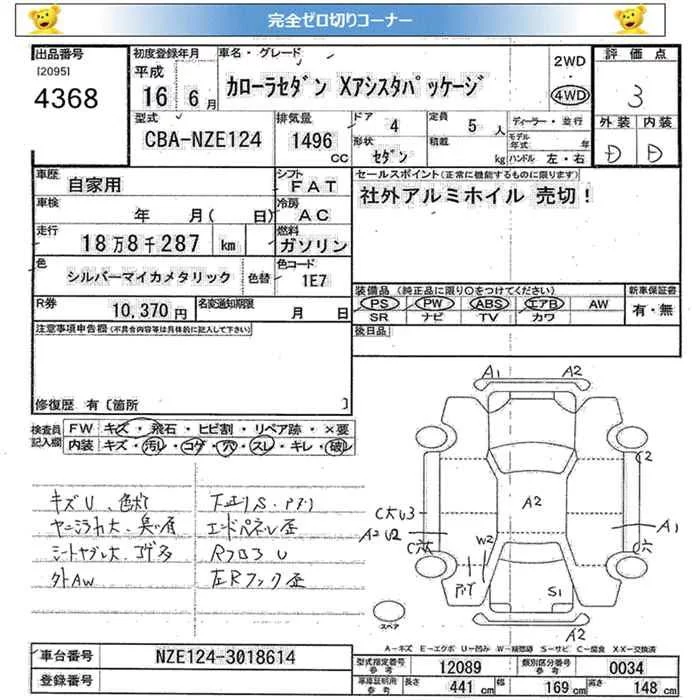 完全ゼロ切りコーナー
出品番号 初度登録年月 車名・グレード 2WD 評価点
[2095] 平成 ・
4368 16 6月 カローラセダン Xアシスタパッケージ 4WD 3
型式 排気量 ドア 4 定員 5人 ディーラー・並行 外装 内装
CBA-NZE124 1496 CC 形状 セダン 積載 kg モデル年式 年 ハンドル 左・右 D D
車歴 自家用 シフト FAT セールスポイント(正常に機能するものに限ります)
車検 年 月( 日) 冷房 AC 社外アルミホイル 売切!
走行 18万8千287 km 燃料 ガソリン
色 シルバーマイカメタリック 色替 色コード 1E7
装備品(純正品に限り○をつけてください) 新車保証書
R券 10,370円 名変通知期限 月 日 PS PW ABS エアB AW 有・無
SR ナビ TV カワ
注意事項申告欄(不具合内容等は具体的に記入して下さい) 後日品
修復歴 有〔箇所 〕
検査員記入欄 FW キズ・飛石・ヒビ割・リペア跡・×要
内装 キズ・汚レ・コゲ・穴・スレ・キレ・破レ
キズU、色
ヤニ 大、臭
シートヤブレ大、コゲ多
外AW
エンドパネル歪
RフロアU
左Rフック歪
A1 A2
C2
A2
C大U3
A2U2
C穴大
A1
C穴
W2
S1
A2
スペア
A−キズ E−エクボ U−凹み W−補修跡 S−サビ C−腐食 XX−交換済
車台番号 NZE124-3018614
登録番号
型式指定番号参考 12089 類別区分番号参考 0034
車庫証明用参考 長さ 441cm 幅 169cm 高さ 148cm